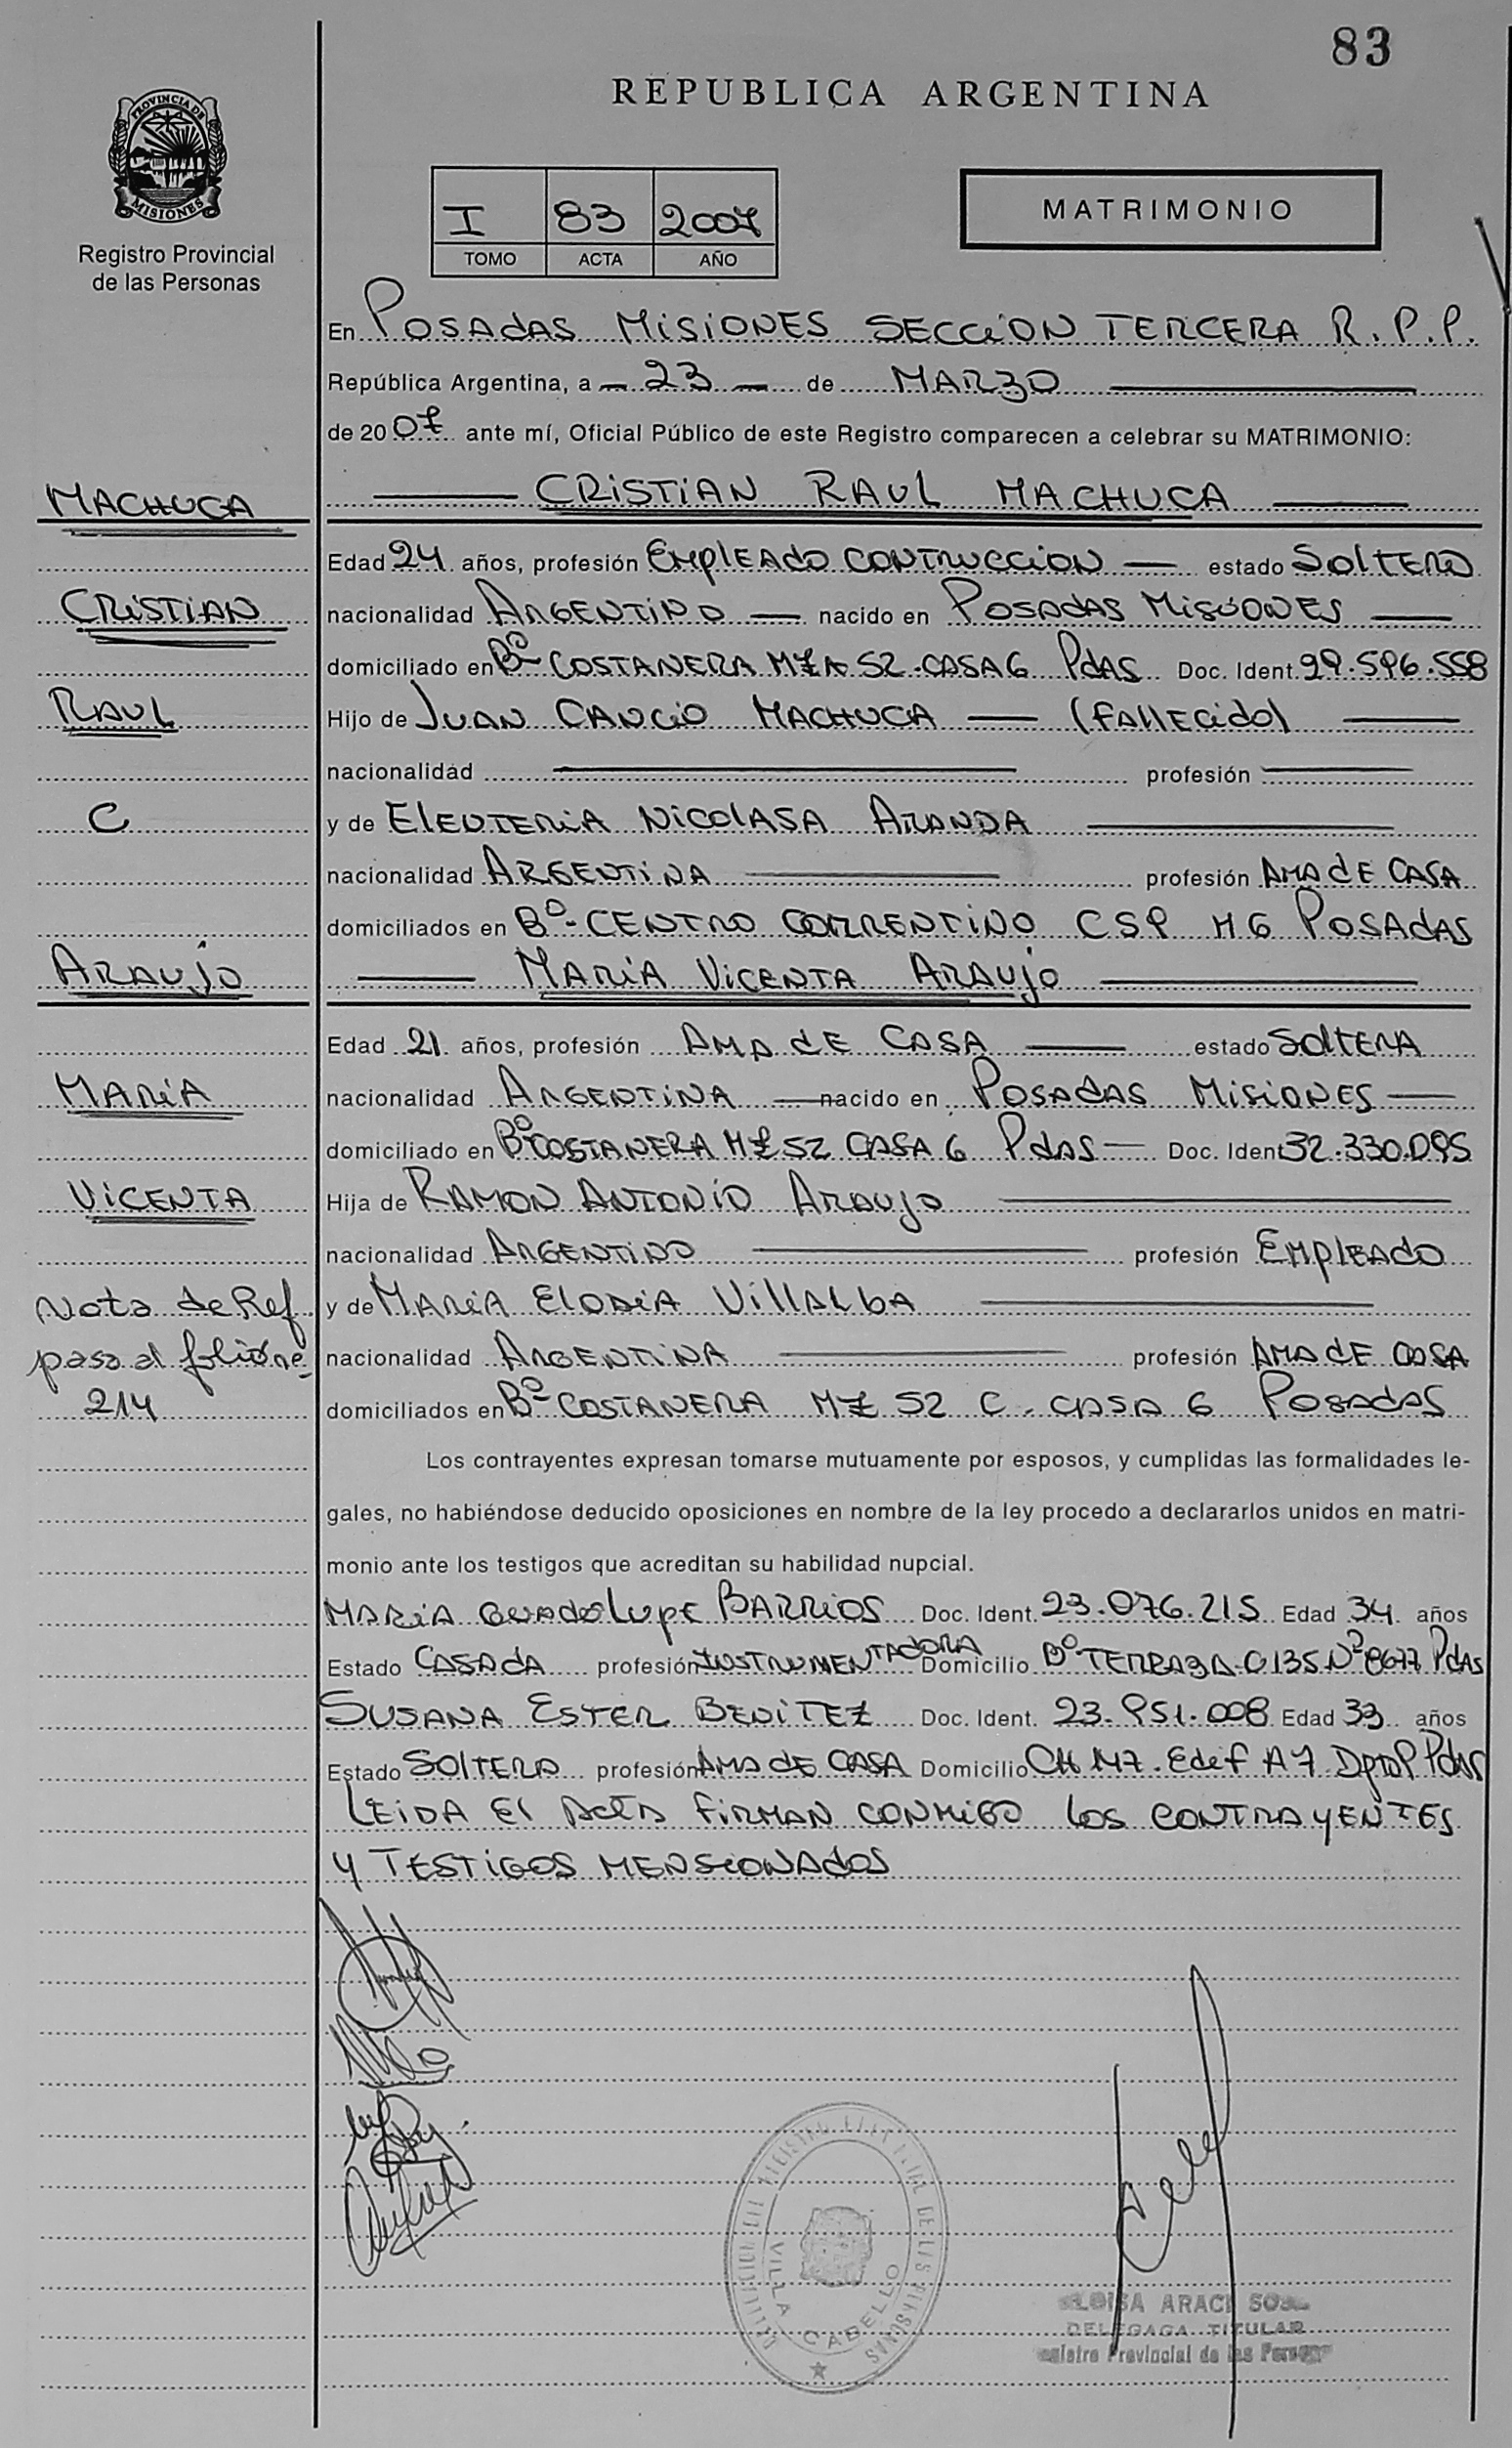 83
REPUBLICA ARGENTINA
PROVINCIA DE
MISIONES
Registro Provincial
de las Personas
I 83 2007
TOMO ACTA AÑO
MATRIMONIO
En POSADAS MISIONES SECCION TERCERA R.P.P.
República Argentina, a 23 de MARZO
de 20 07 ante mí, Oficial Público de este Registro comparecen a celebrar su MATRIMONIO:
MACHUCA CRISTIAN RAUL MACHUCA
Edad 24 años, profesión EMPLEADO CONTRUCCION estado SOLTERO
CRISTIAN nacionalidad ARGENTINO nacido en POSADAS MISIONES
domiciliado en Bº COSTANERA MZA 52 CASA 6 PDAS Doc. Ident. 29.596.558
RAUL Hijo de JUAN CANCIO MACHUCA (FALLECIDO)
nacionalidad profesión
C y de ELEUTERIA NICOLASA ARANDA
nacionalidad ARGENTINA profesión AMA DE CASA
domiciliados en Bº CENTRO CORRENTINO CSP M6 POSADAS
ARAUJO MARIA VICENTA ARAUJO
Edad 21 años, profesión AMA DE CASA estado SOLTERA
MARIA nacionalidad ARGENTINA nacido en POSADAS MISIONES
domiciliado en Bº COSTANERA MZ 52 CASA 6 PDAS Doc. Ident 32.330.095
VICENTA Hija de RAMON ANTONIO ARAUJO
nacionalidad ARGENTINO profesión EMPLEADO
Nota de Ref. y de MARIA ELODIA VILLALBA
pasa al folio nº nacionalidad ARGENTINA profesión AMA DE CASA
214 domiciliados en Bº COSTANERA MZ 52 C. CASA 6 POSADAS
Los contrayentes expresan tomarse mutuamente por esposos, y cumplidas las formalidades le-
gales, no habiéndose deducido oposiciones en nombre de la ley procedo a declararlos unidos en matri-
monio ante los testigos que acreditan su habilidad nupcial.
MARIA GUADALUPE BARRIOS Doc. Ident. 23.076.215 Edad 34 años
Estado CASADA profesión INSTRUMENTADORA Domicilio Bº TERRAZA C135 Nº 8677 PDAS
SUSANA ESTER BENITEZ Doc. Ident. 23.951.008 Edad 33 años
Estado SOLTERA profesión AMA DE CASA Domicilio CH 147. Edif A7 Dpto P Pdas
LEIDA El ACTA FIRMAN CONMIGO los CONTRAYENTES
Y TESTIGOS MENSIONADOS
VILLA CABELLO
DELEGACION DEL REGISTRO PROVINCIAL DE LAS PERSONAS
DELEGADA TITULAR
Registro Provincial de las Personas